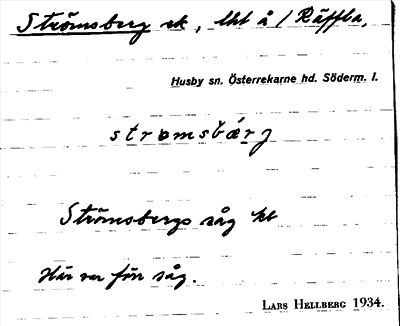 Strömsberg ek, lht å / Räffla,
Husby sn. Österrekarne hd. Söderm. l.
strømsbærj
Strömsbergs såg kt
Här var förr såg.
LARS HELLBERG 1934.